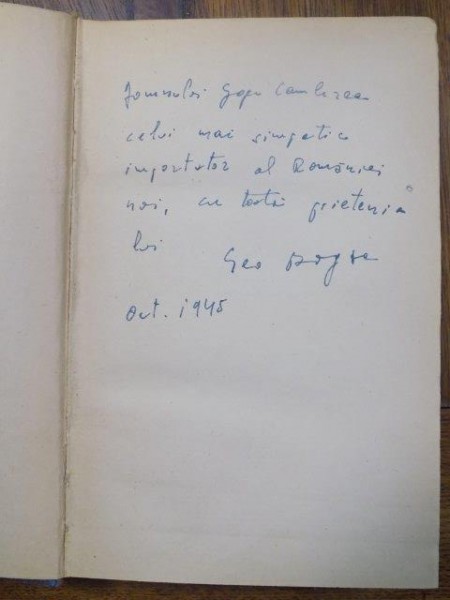 Domnului Gogu
celui mai simpatic
importator al României
noi, cu toată prietenia
lui Geo Bogza
Oct. 1945